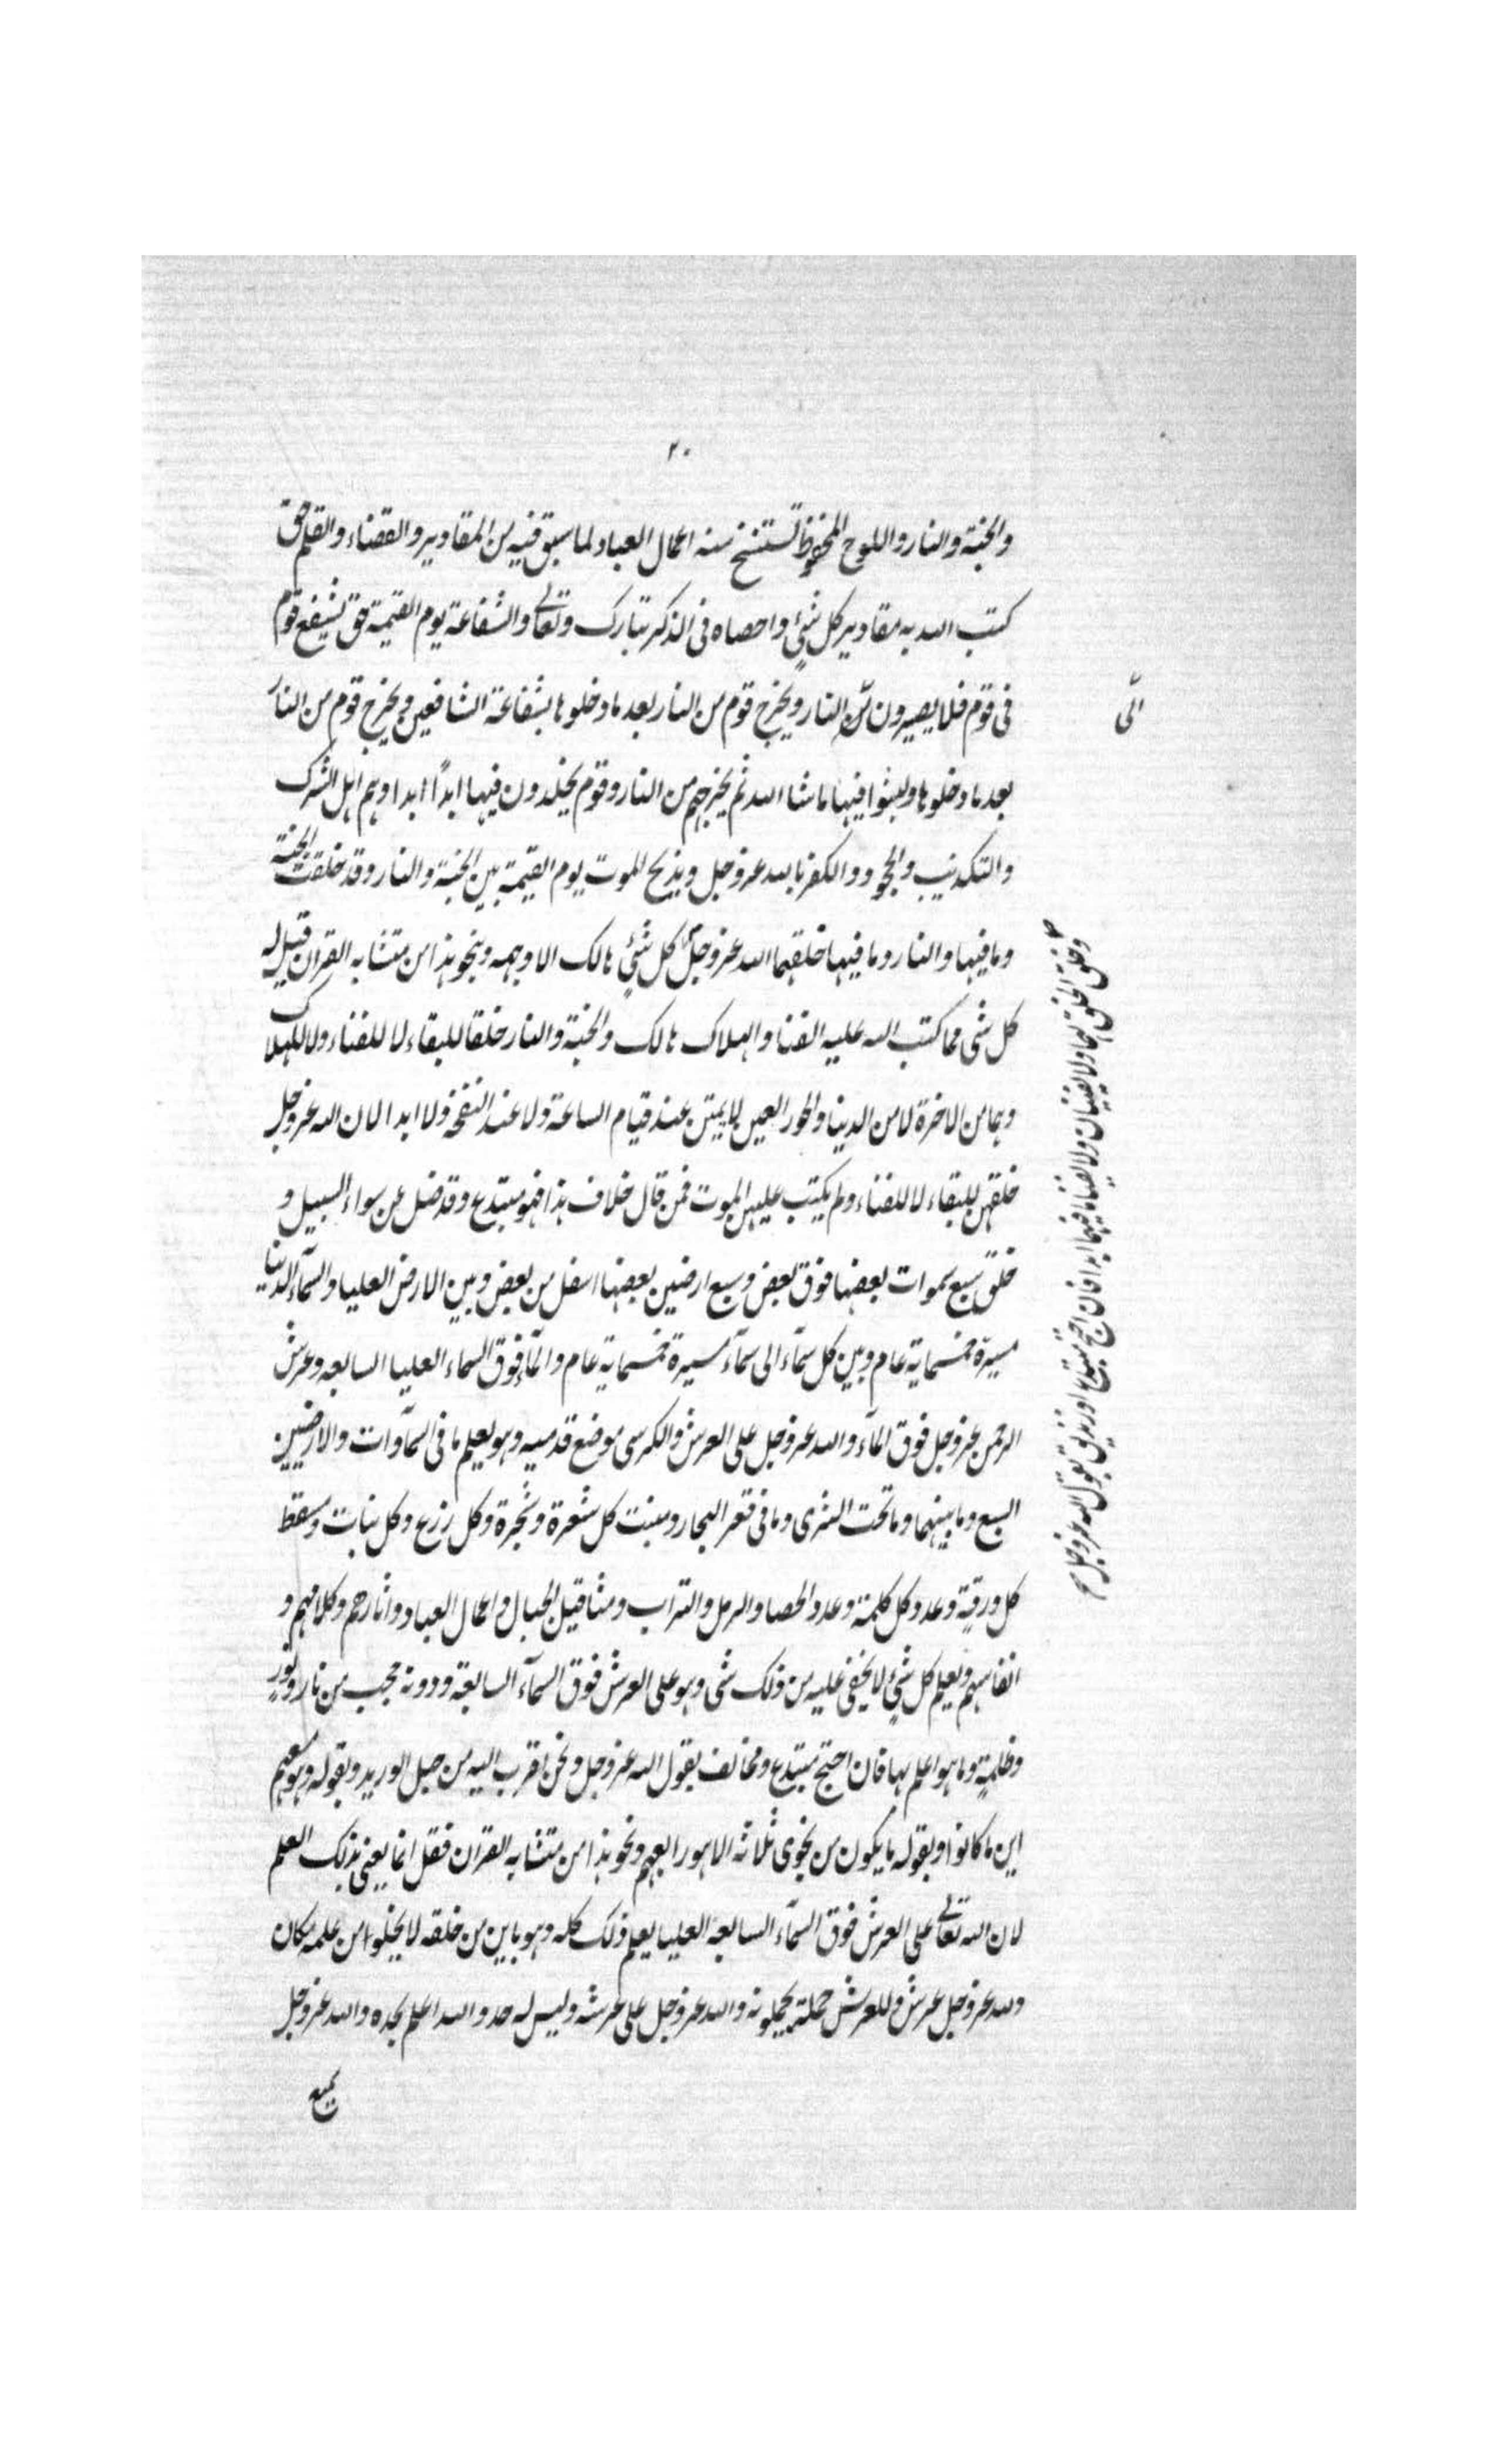 ۲۰
والجنة والنار واللوح المحفوظ تستنسخ منه اعمال العباد لما سبق فيه من المقادير والقضاء والقلم حق
كتب الله به مقادير كل شيٍ واحصاه فى الذكر تبارك وتعالى والشفاعة يوم القيمة حق يشفع قوم
فى قوم فلا يصيرون الى النار ويخرج قوم من النار بعد ما دخلوها بشفاعة الشافعين ويخرج قوم من النار
الى
بعد ما دخلوها ولبثوا فيها ما شا الله ثم يخرجهم من النار وقوم يخلدون فيها ابداً ابدا وهم اهل الشرك
والتكذيب والجحود والكفر بالله عز وجل ويذبح الموت يوم القيمة بين الجنة والنار وقد خلقت الجنة
وما فيها والنار وما فيها خلقهما الله عز وجل كل شيٍ هالك الا وجهه وبنحو هذا من متشابه القران قيل له
وخلق الخلق لهما ولا يفنيان ولا يفنا ما فيهما ابدا فان احتج مبتدع او زنديق بقول الله عز وجل صح
كل شى مما كتب الله عليه الفنا والهلاك هالك والجنة والنار خلقا للبقاء لا للفناء ولا للهلاك
وهما من الاخرة لا من الدنيا والحور العين لا يمتن عند قيام الساعة ولا عند النفخة ولا ابدا لان الله عز وجل
خلقهن للبقاء لا للفناء ولم يكتب عليهن الموت فمن قال خلاف هذا فهو مبتدع وقد ضل عن سواء السبيل و
خلق سبع سموات بعضها فوق بعض وسبع ارضين بعضها اسفل من بعض وبين الارض العليا والسمآء الدنيا
مسيرة خمسماية عام وبين كل سمآء الى سمآء مسيرة خمسماية عام والمآء فوق السماء العليا السابعه وعرش
الرحمن عز وجل فوق المآء والله عز وجل على العرش والكرسى موضع قدميه وهو يعلم ما فى السمآوات والارضين
السبع وما بينهما وما تحت الثرى وما فى قعر البحار ومنبت كل شعرة وشجرة وكل زرع وكل نبات ومسقط
كل ورقة وعدد كل كلمة وعدد الحصا والرمل والتراب ومثاقيل الجبال واعمال العباد واثارهم وكلامهم و
انفاسهم ويعلم كل شيٍ لا يخفى عليه من ذلك شى وهو على العرش فوق السمآء السابعة ودونه حجب من نار ونور
وظلمة وما هو اعلم بها فان احتج مبتدع ومخالف بقول الله عز وجل ونحن اقرب اليه من حبل الوريد وبقوله وهو معهم
اين ما كانوا وبقوله ما يكون من نجوى ثلاثه الا هو رابعهم ونحو هذا من متشابه القران فقل انما يعنى بذلك العلم
لان الله تعالى على العرش فوق السمآء السابعة العليا يعلم ذلك كله وهو باين من خلقه لا يخلوا من علمه مكان
ولله عز وجل عرش وللعرش حملة يحملونه والله عز وجل على عرشه وليس له حد والله اعلم بحده والله عز وجل
سميع